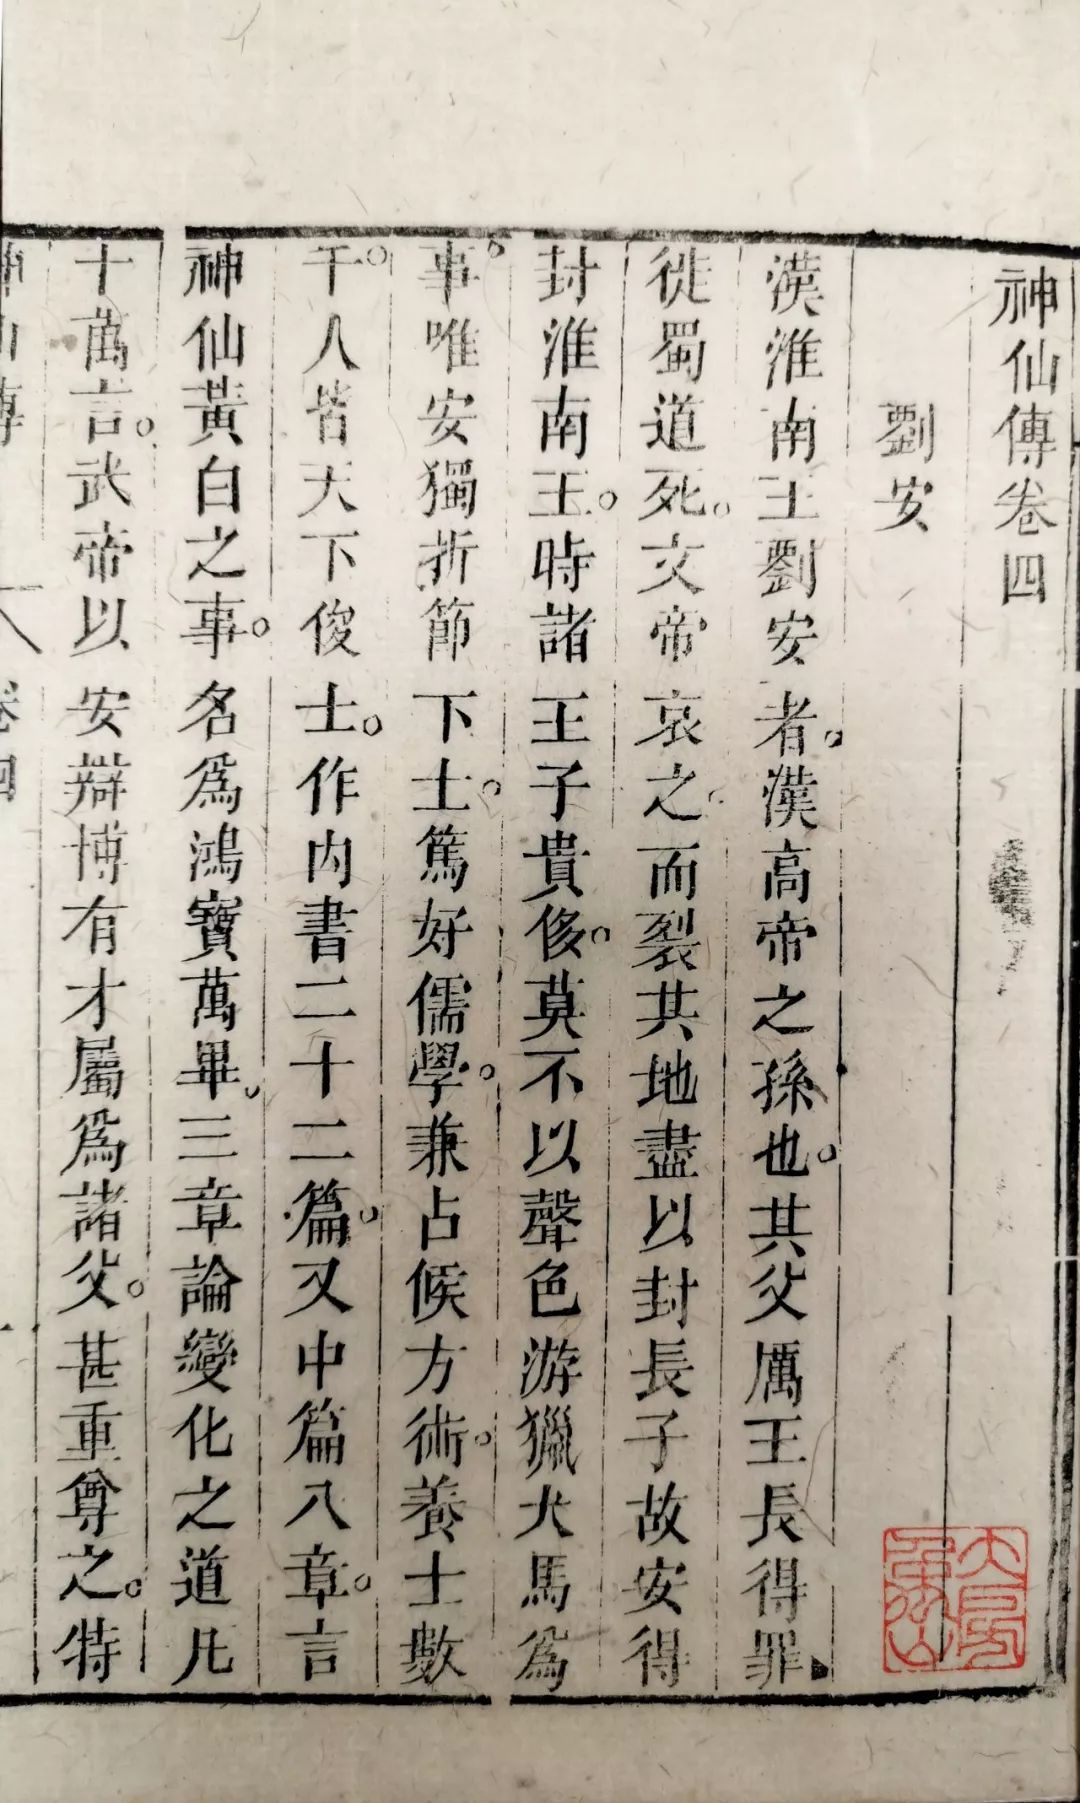 神仙傳卷四
劉安
漢淮南王劉安者。漢高帝之孫也。其父厲王長得罪
徙蜀道死。文帝哀之。而裂其地盡以封長子故安得
封淮南王。時諸王子貴侈。莫不以聲色游獵犬馬爲
事。唯安獨折節下士。篤好儒學。兼占候方術。養士數
千人。皆天下俊士。作內書二十二篇。又中篇八章。言
神仙黃白之事。名爲鴻寶萬畢。三章論變化之道凡
十萬言。武帝以安辯博有才屬爲諸父。甚重尊之。特
神仙傳 卷四 一